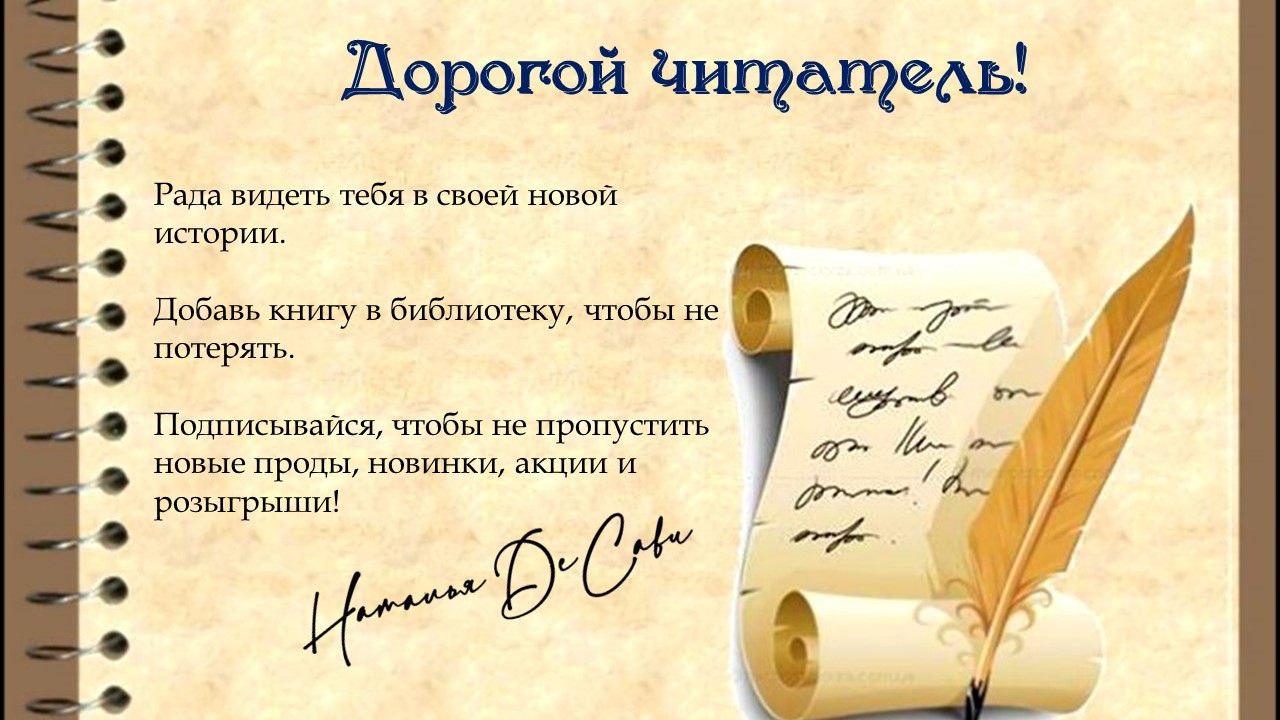 Дорогой читатель!
Рада видеть тебя в своей новой
истории.
Добавь книгу в библиотеку, чтобы не
потерять.
Подписывайся, чтобы не пропустить
новые проды, новинки, акции и
розыгрыши!
Наталья Де Сави